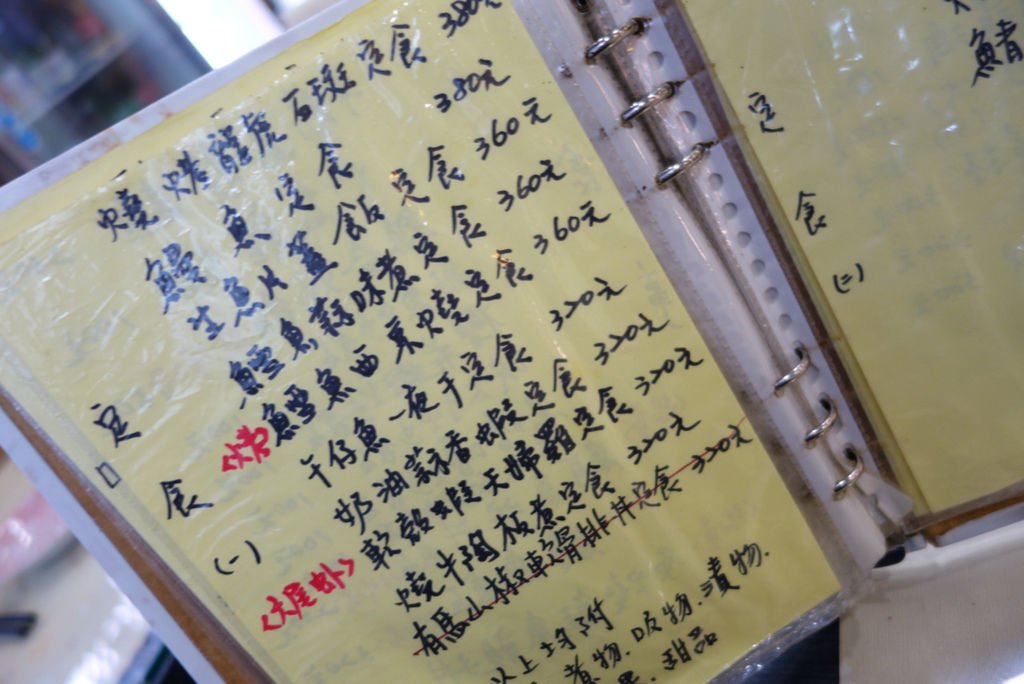 燒烤龍虎石斑定食 380元
鰻魚定食 380元
生魚片蓋飯定食 360元
鱈魚蒜味煮定食 360元
<烤>鱈魚西京燒定食 360元
午仔魚一夜干定食 320元
奶油蒜香蝦定食 320元
<大尾虾>軟殼蝦天婦羅定食 320元
燒牛陶板煮定食 320元
有馬山椒軟骨排丼定食 320元
以上均附
煮物.吸物.漬物.
甜品
定食(一)
定食(二)